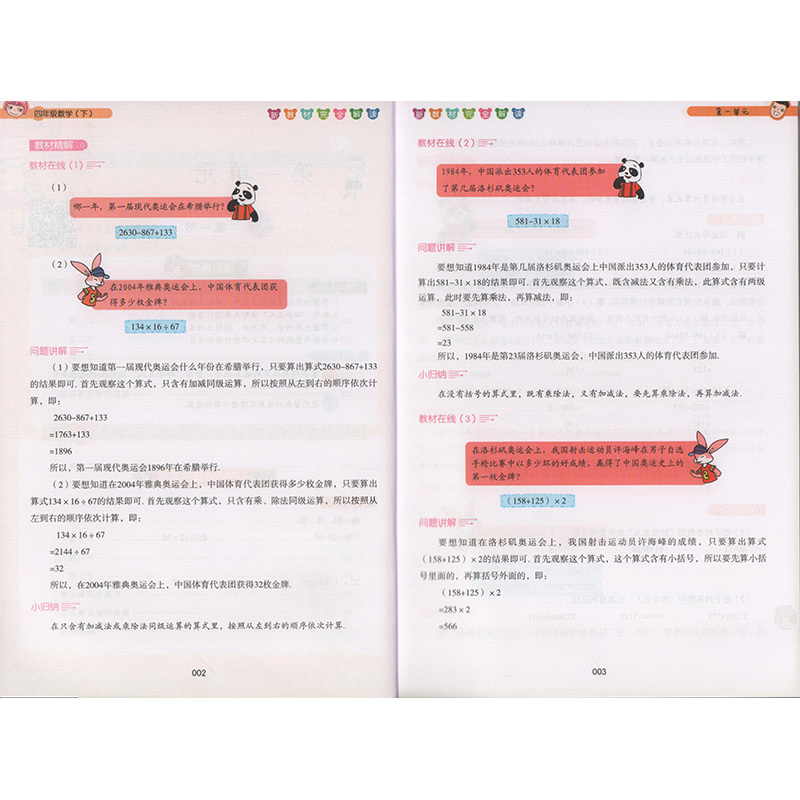 四年级数学（下）
新教材完全解读
教材精解
教材在线（1）
（1）
哪一年，第一届现代奥运会在希腊举行？
2630-867+133
（2）
在2004年雅典奥运会上，中国体育代表团获
得多少枚金牌？
134×16÷67
问题讲解
（1）要想知道第一届现代奥运会什么年份在希腊举行，只要算出算式2630-867+133
的结果即可. 首先观察这个算式，只含有加减同级运算，所以按照从左到右的顺序依次计
算，即：
2630-867+133
=1763+133
=1896
所以，第一届现代奥运会1896年在希腊举行.
（2）要想知道在2004年雅典奥运会上，中国体育代表团获得多少枚金牌，只要算出
算式134×16÷67的结果即可. 首先观察这个算式，只含有乘、除法同级运算，所以按照从
左到右的顺序依次计算，即：
134×16÷67
=2144÷67
=32
所以，在2004年雅典奥运会上，中国体育代表团获得32枚金牌.
小归纳
在只含有加减法或乘除法同级运算的算式里，按照从左到右的顺序依次计算.
002
新教材完全解读
第一单元
教材在线（2）
1984年，中国派出353人的体育代表团参加
了第几届洛杉矶奥运会？
581-31×18
问题讲解
要想知道1984年是第几届洛杉矶奥运会上中国派出353人的体育代表团参加，只要计
算出581-31×18的结果即可. 首先观察这个算式，既含减法又含有乘法，此算式含有两级
运算，此时要先算乘法，再算减法，即：
581-31×18
=581-558
=23
所以，1984年是第23届洛杉矶奥运会，中国派出353人的体育代表团参加.
小归纳
在没有括号的算式里，既有乘除法，又有加减法，要先算乘除法，再算加减法.
教材在线（3）
在洛杉矶奥运会上，我国射击运动员许海峰在男子自选
手枪比赛中以多少环的好成绩，赢得了中国奥运史上的
第一枚金牌？
（158+125）×2
问题讲解
要想知道在洛杉矶奥运会上，我国射击运动员许海峰的成绩，只要算出算式
（158+125）×2的结果即可. 首先观察这个算式，这个算式含有小括号，所以要先算小括
号里面的，再算括号外面的，即：
（158+125）×2
=283×2
=566
003